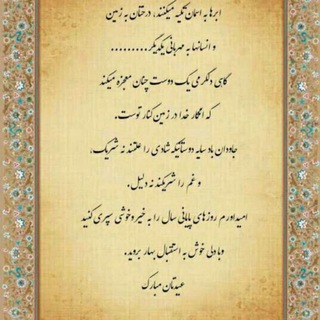 ابرها به آسمان تکیه میکنند، درختان به زمین
و انسانها به مهربانی یکدیگر..........
گاهی دلگرمی یک دوست چنان معجزه میکند
که انگار خدا در زمین کنار توست.
جاودان باد سایه دوستانیکه شادی را علتند نه شریک،
و غم را شریکند نه دلیل.
امیداورم روزهای پایانی سال را به خیر و خوشی سپری کنید
و با دلی خوش به استقبال بهار بروید.
عیدتان مبارک